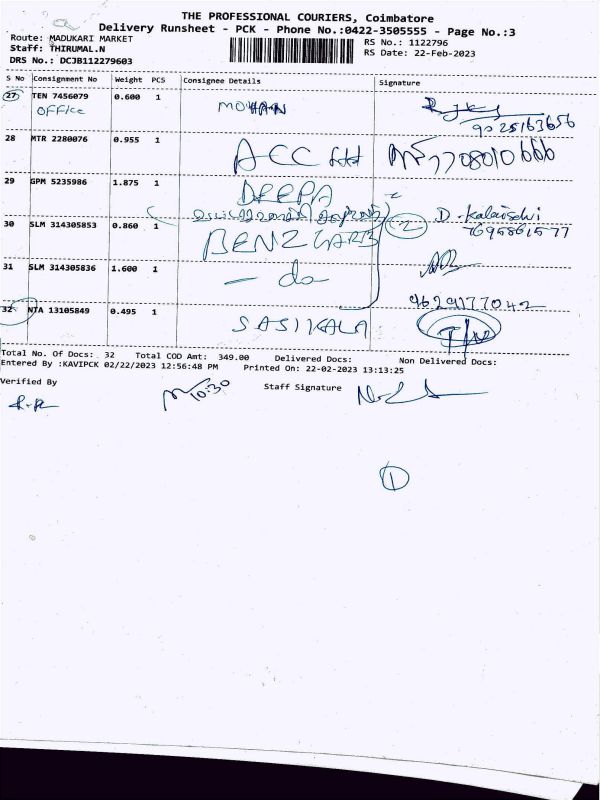 THE PROFESSIONAL COURIERS, Coimbatore
Delivery Runsheet - PCK - Phone No.:0422-3505555 - Page No.:3
Route: MADUKARI MARKET
RS No.: 1122796
Staff: THIRUMAL.N
RS Date: 22-Feb-2023
DRS No.: DCJB112279603
S No Consignment No Weight PCS Consignee Details Signature
27 TEN 7456079 0.600 1 MOHAN
OFFICE 9025163656
28 MTR 2280076 0.955 1 ACC Ltd 7708010666
29 GPM 5235986 1.875 1 DEEPA
D.kalaiselvi
30 SLM 314305853 0.860 1 BENZ 2 7695861577
31 SLM 314305836 1.600 1 - do
9629177042
32 NTA 13105849 0.495 1 SASIKALA
Total No. Of Docs: 32 Total COD Amt: 349.00 Delivered Docs: Non Delivered Docs:
Entered By :KAVIPCK 02/22/2023 12:56:48 PM Printed On: 22-02-2023 13:13:25
Verified By Staff Signature
10:30
1